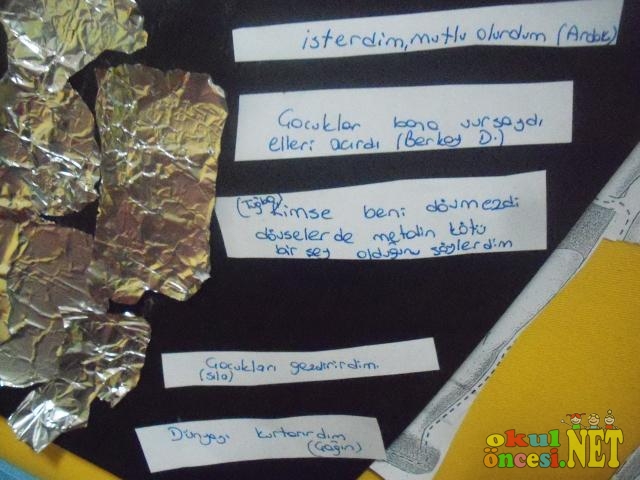 isterdim, mutlu olurdum (Ardak)
Çocuklar bana vursaydı
elleri acırdı (Berkay D.)
(Tuğba) Kimse beni dövmezdi
dövselerde metalin kötü
bir şey olduğunu söylerdim
Çocukları gezdirirdim.
(Sıla)
Dünyayı kurtarırdım
(Çağın)
okul
öncesi.NET